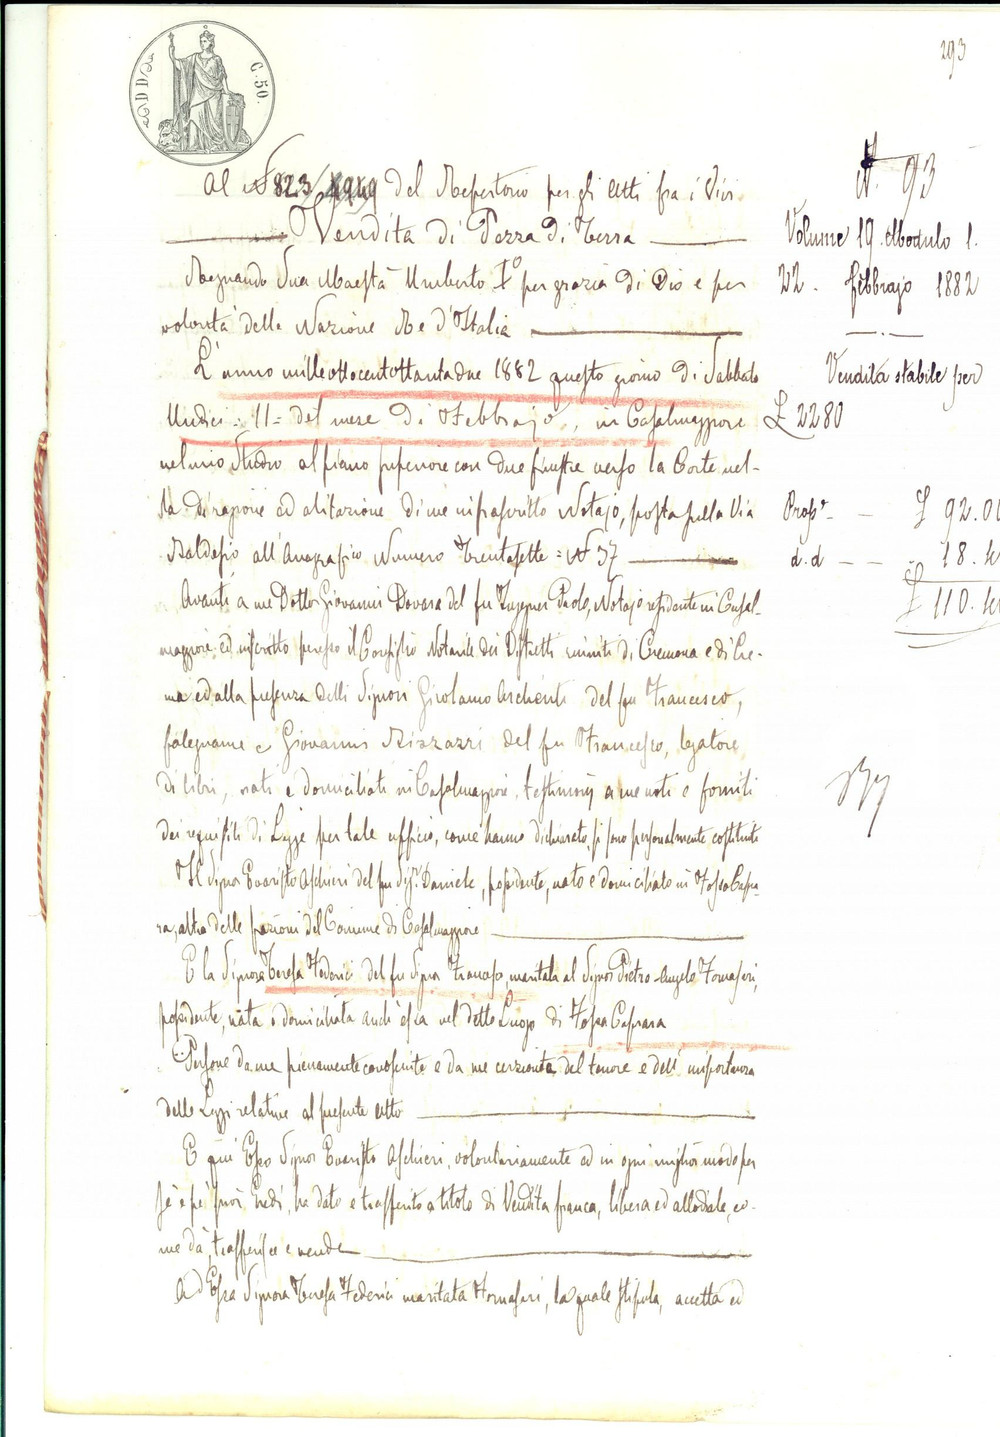 293
C. 50.
Al N 823/ del Repertorio per gli Atti fra i Vivi
Vendita di Pezza di Terra
Regnando Sua Maestà Umberto Iº per grazia di Dio e per
volontà della Nazione Re d'Italia
L'anno mille ottocentottantadue 1882 questo giorno di Sabbato
Undici = 11 = del mese di Febbrajo, in Casalmaggiore
nel mio Studio al piano superiore con due finestre verso la Corte nel-
la di ragione ed abitazione di me infrascritto Notajo, posta sulla Via
Baldesio all'Anagrafico Numero Trentasette = N 37
Avanti a me Dottor Giovanni Dovara del fu Ingegner Paolo, Notajo residente in Casal-
maggiore ed inscritto presso il Consiglio Notarile dei Distretti riuniti di Cremona e di Cre-
ma ed alla presenza delli Signori Girolamo Aschieri del fu Francesco,
falegname e Giovanni Rizzazzi del fu Francesco, legatore
di libri, nati e domiciliati in Casalmaggiore, testimonj a me noti e forniti
dei requisiti di Legge per tale ufficio, come hanno dichiarato, si sono personalmente costituiti
Il Signor Evaristo Aschieri del fu Sigr. Daniele, possidente, nato e domiciliato in Fossa Capra-
ra, altra delle frazioni del Comune di Casalmaggiore
E la Signora Teresa Federici del fu Signor Francesco, maritata al Signor Pietro-Angelo Fornasari,
possidente, nata e domiciliata anch'essa nel detto Luogo di Fossa Caprara
Persone da me pienamente conosciute e da me cerziorate del tenore e dell'importanza
delle Leggi relative al presente Atto
E qui Esso Signor Evaristo Aschieri, volontariamente ed in ogni miglior modo per
sè e pei suoi Eredi, ha dato e trasferito a titolo di Vendita franca, libera ed allodiale, co-
me dà, trasferisce e vende
Ad Essa Signora Teresa Federici maritata Fornasari, la quale stipula, accetta ed
N. 93
Volume 19. Modulo 1.
22. Febbrajo 1882
Vendita stabile per
£ 2280
Propl - - £ 92.00
d.d - - 18.
£ 110.